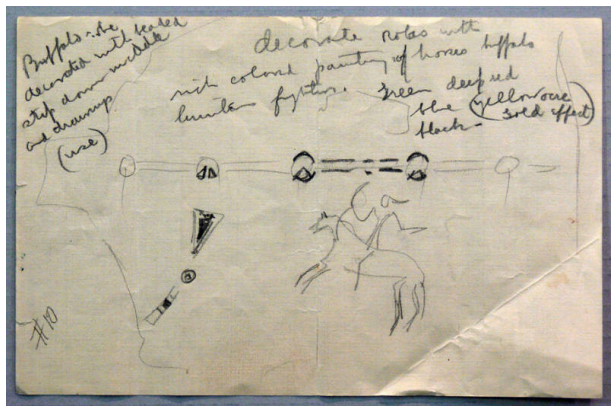 Buffalo robe
decorated with beaded
strip down middle
and drawing
(use)
decorate robes with
rich colored painting of horses buffalo
hunters fighting. Green deep red
blue (yellow ocre
gold effect)
black
#10